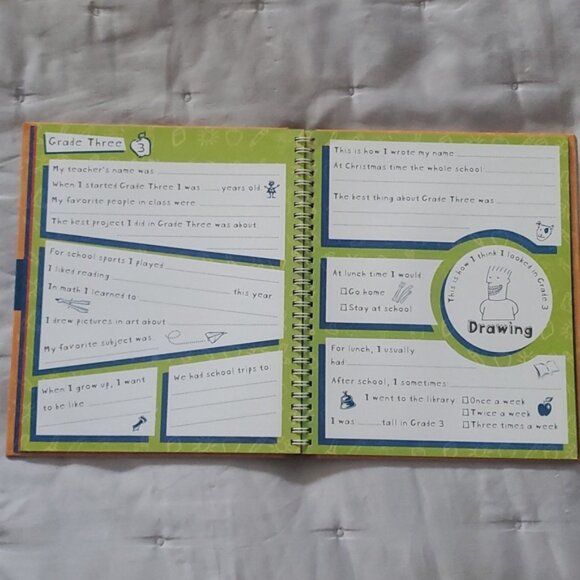 Grade Three
3
My teacher's name was
When I started Grade Three I was years old.
My favorite people in class were
The best project I did in Grade Three was about:
For school sports I played
I liked reading
In math I learned to this year
I drew pictures in art about
My favorite subject was:
When I grow up, I want
to be like
We had school trips to:
This is how I wrote my name
At Christmas time the whole school:
The best thing about Grade Three was
At lunch time I would
Go home
Stay at school
This is how I think I looked in Grade 3
Drawing
For lunch, I usually
had
After school, I sometimes
I went to the library:
Once a week
Twice a week
Three times a week
I was tall in Grade 3